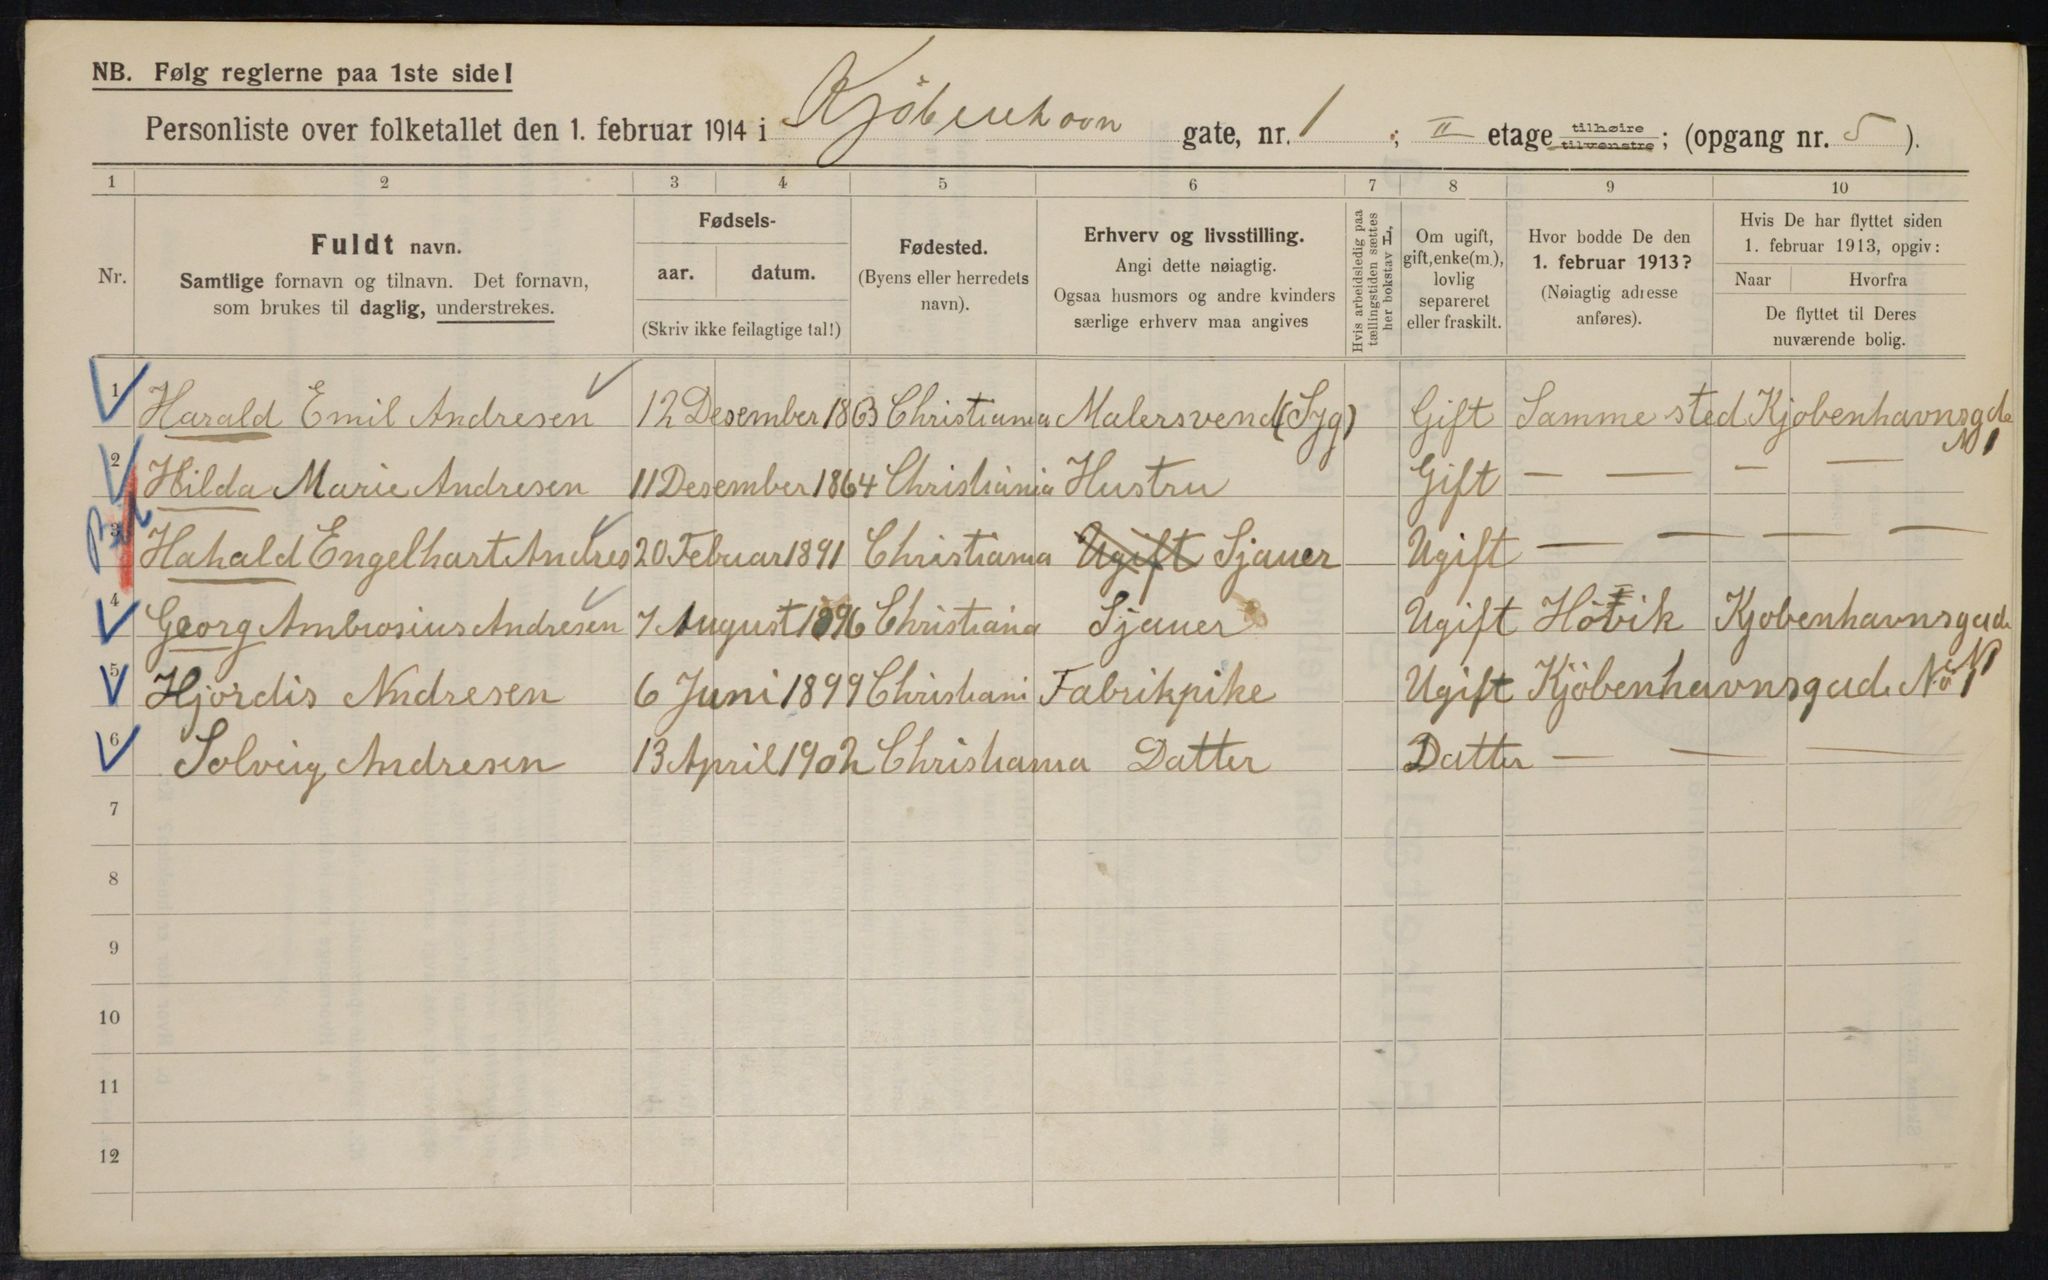 NB. Følg reglerne paa 1ste side!
Personliste over folketallet den 1. februar 1914 i Kjöbenhavn gate, nr. 1 ; II etage tilhøire tilvenstre; (opgang nr. 5 ).
1 2 3 4 5 6 7 8 9 10
Nr.
Fuldt navn.
Samtlige fornavn og tilnavn. Det fornavn,
som brukes til daglig, understrekes.
Fødsels-
aar. datum.
(Skriv ikke feilagtige tal!)
Fødested.
(Byens eller herredets
navn).
Erhverv og livsstilling.
Angi dette nøiagtig.
Ogsaa husmors og andre kvinders
særlige erhverv maa angives
Hvis arbeidsledig paa
tællingstiden sættes
her bokstav H.
Om ugift,
gift, enke(m.),
lovlig
separeret
eller fraskilt.
Hvor bodde De den
1. februar 1913?
(Nøiagtig adresse
anføres).
Hvis De har flyttet siden
1. februar 1913, opgiv:
Naar Hvorfra
De flyttet til Deres
nuværende bolig.
1 Harald Emil Andresen 12 Desember 1863 Christiania Malersvend (Syg) Gift Samme sted Kjobenhavnsgde
N 1
2 Hilda Marie Andresen 11 Desember 1864 Christiania Hustru Gift — — — —
3 Hahald Engelhart Andres 20 Februar 1891 Christiania Ugift Sjauer Ugift — — — —
4 Georg Ambrosius Andresen 7 August 1896 Christiana Sjauer Ugift Hövik Kjobenhavnsgade
N 1
5 Hjordis Andresen 6 Juni 1899 Christiani Fabrikpike Ugift Kjöbenhavnsgade No 1
6 Solveig Andresen 13 April 1902 Christiania Datter Datter — — —
7
8
9
10
11
12